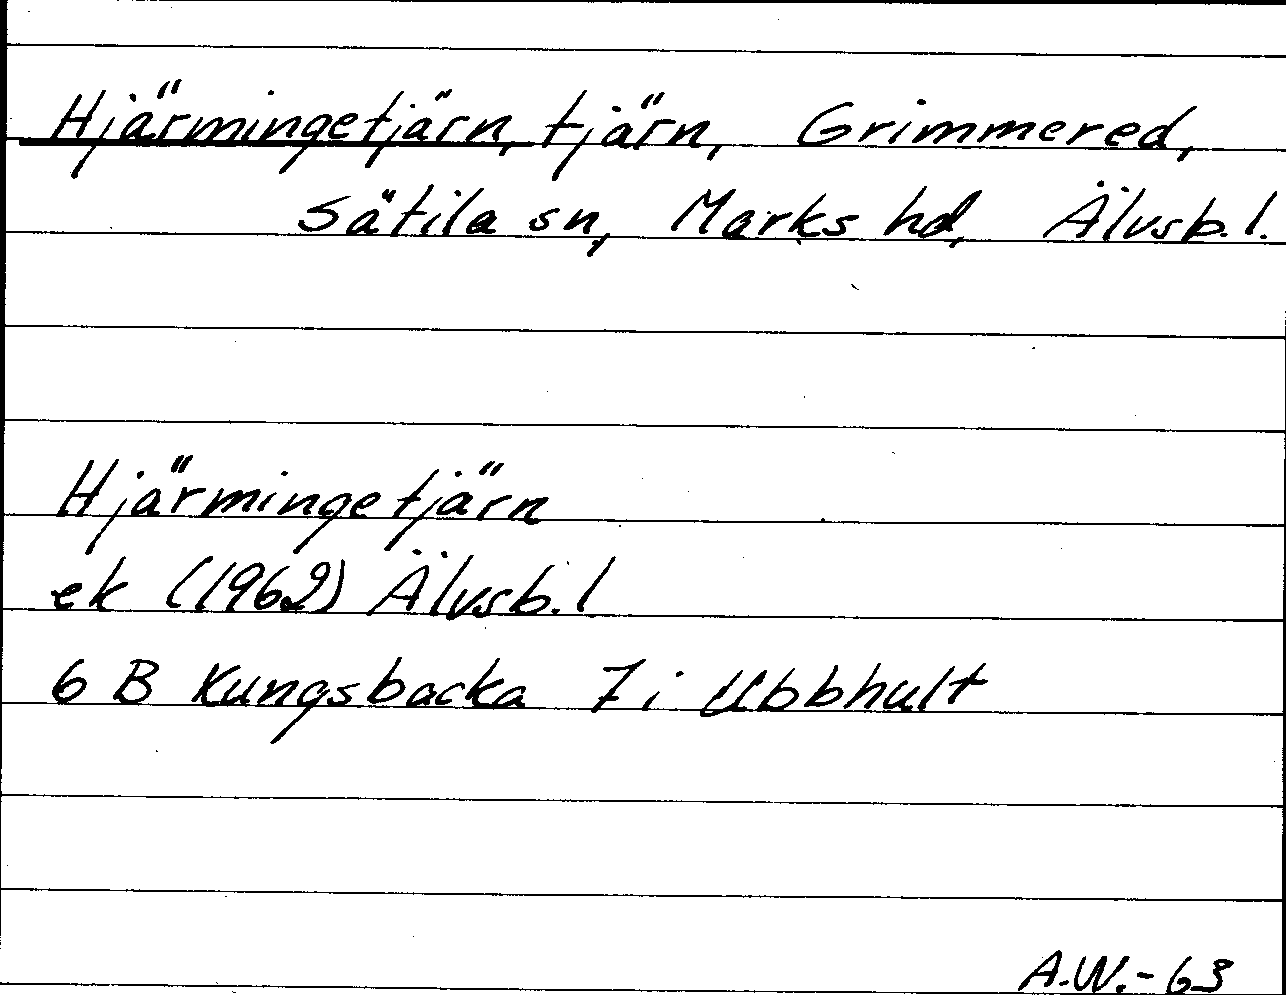 Hjärmingetjärn, tjärn, Grimmered,
Sätila sn, Marks hd, Älvsb.l.
Hjärmingetjärn
ek (1962) Älvsb.l
6 B Kungsbacka 7i Ubbhult
A.W.-63